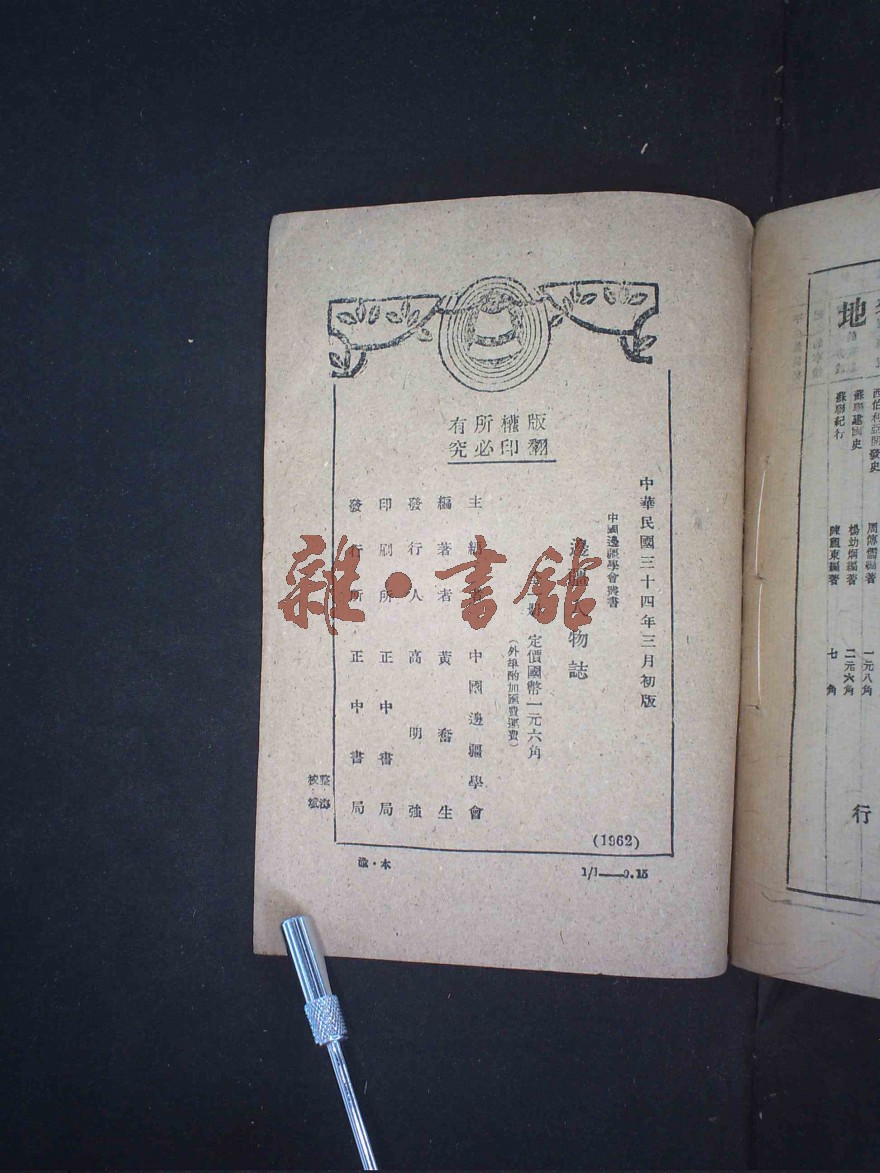 版權所有
翻印必究
中華民國三十四年三月初版
中國邊疆學會叢書
邊疆人物誌
定價國幣一元六角
(外埠酌加匯費運費)
主編者 中國邊疆學會
編著者 黃奮生
發行人 高明強
印刷所 正中書局
發行所 正中書局
(1962)
1/1——0.15
渝·本
雜·書館
地
西伯利亞開發史 周傳儒編著 一元八角
蘇聯建國史 楊幼炯編著 二元六角
蘇聯紀行 編著 七角
行